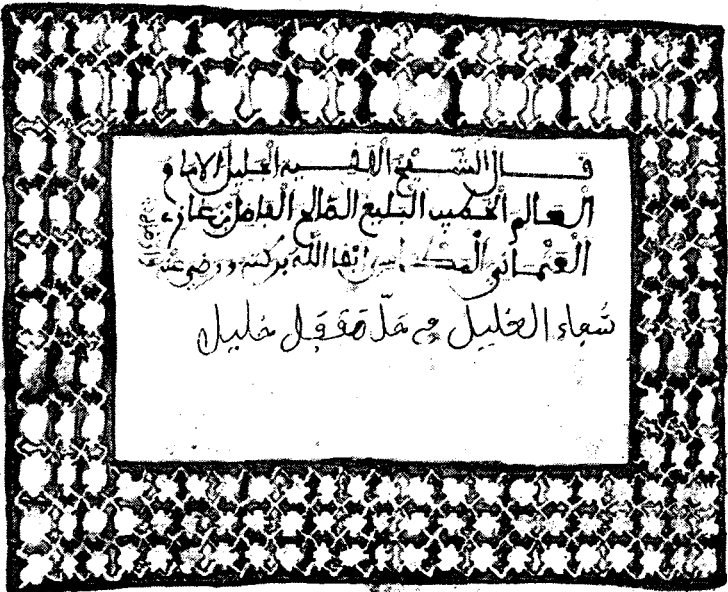 قال الشيخ الفقيه الجليل الإمام
العالم الخطيب البليغ الصالح الفاضل بن غازي
العثماني المكناسي أبقا الله بركته ورضي عنه
شفاء الغليل في حلّ مقفل خليل